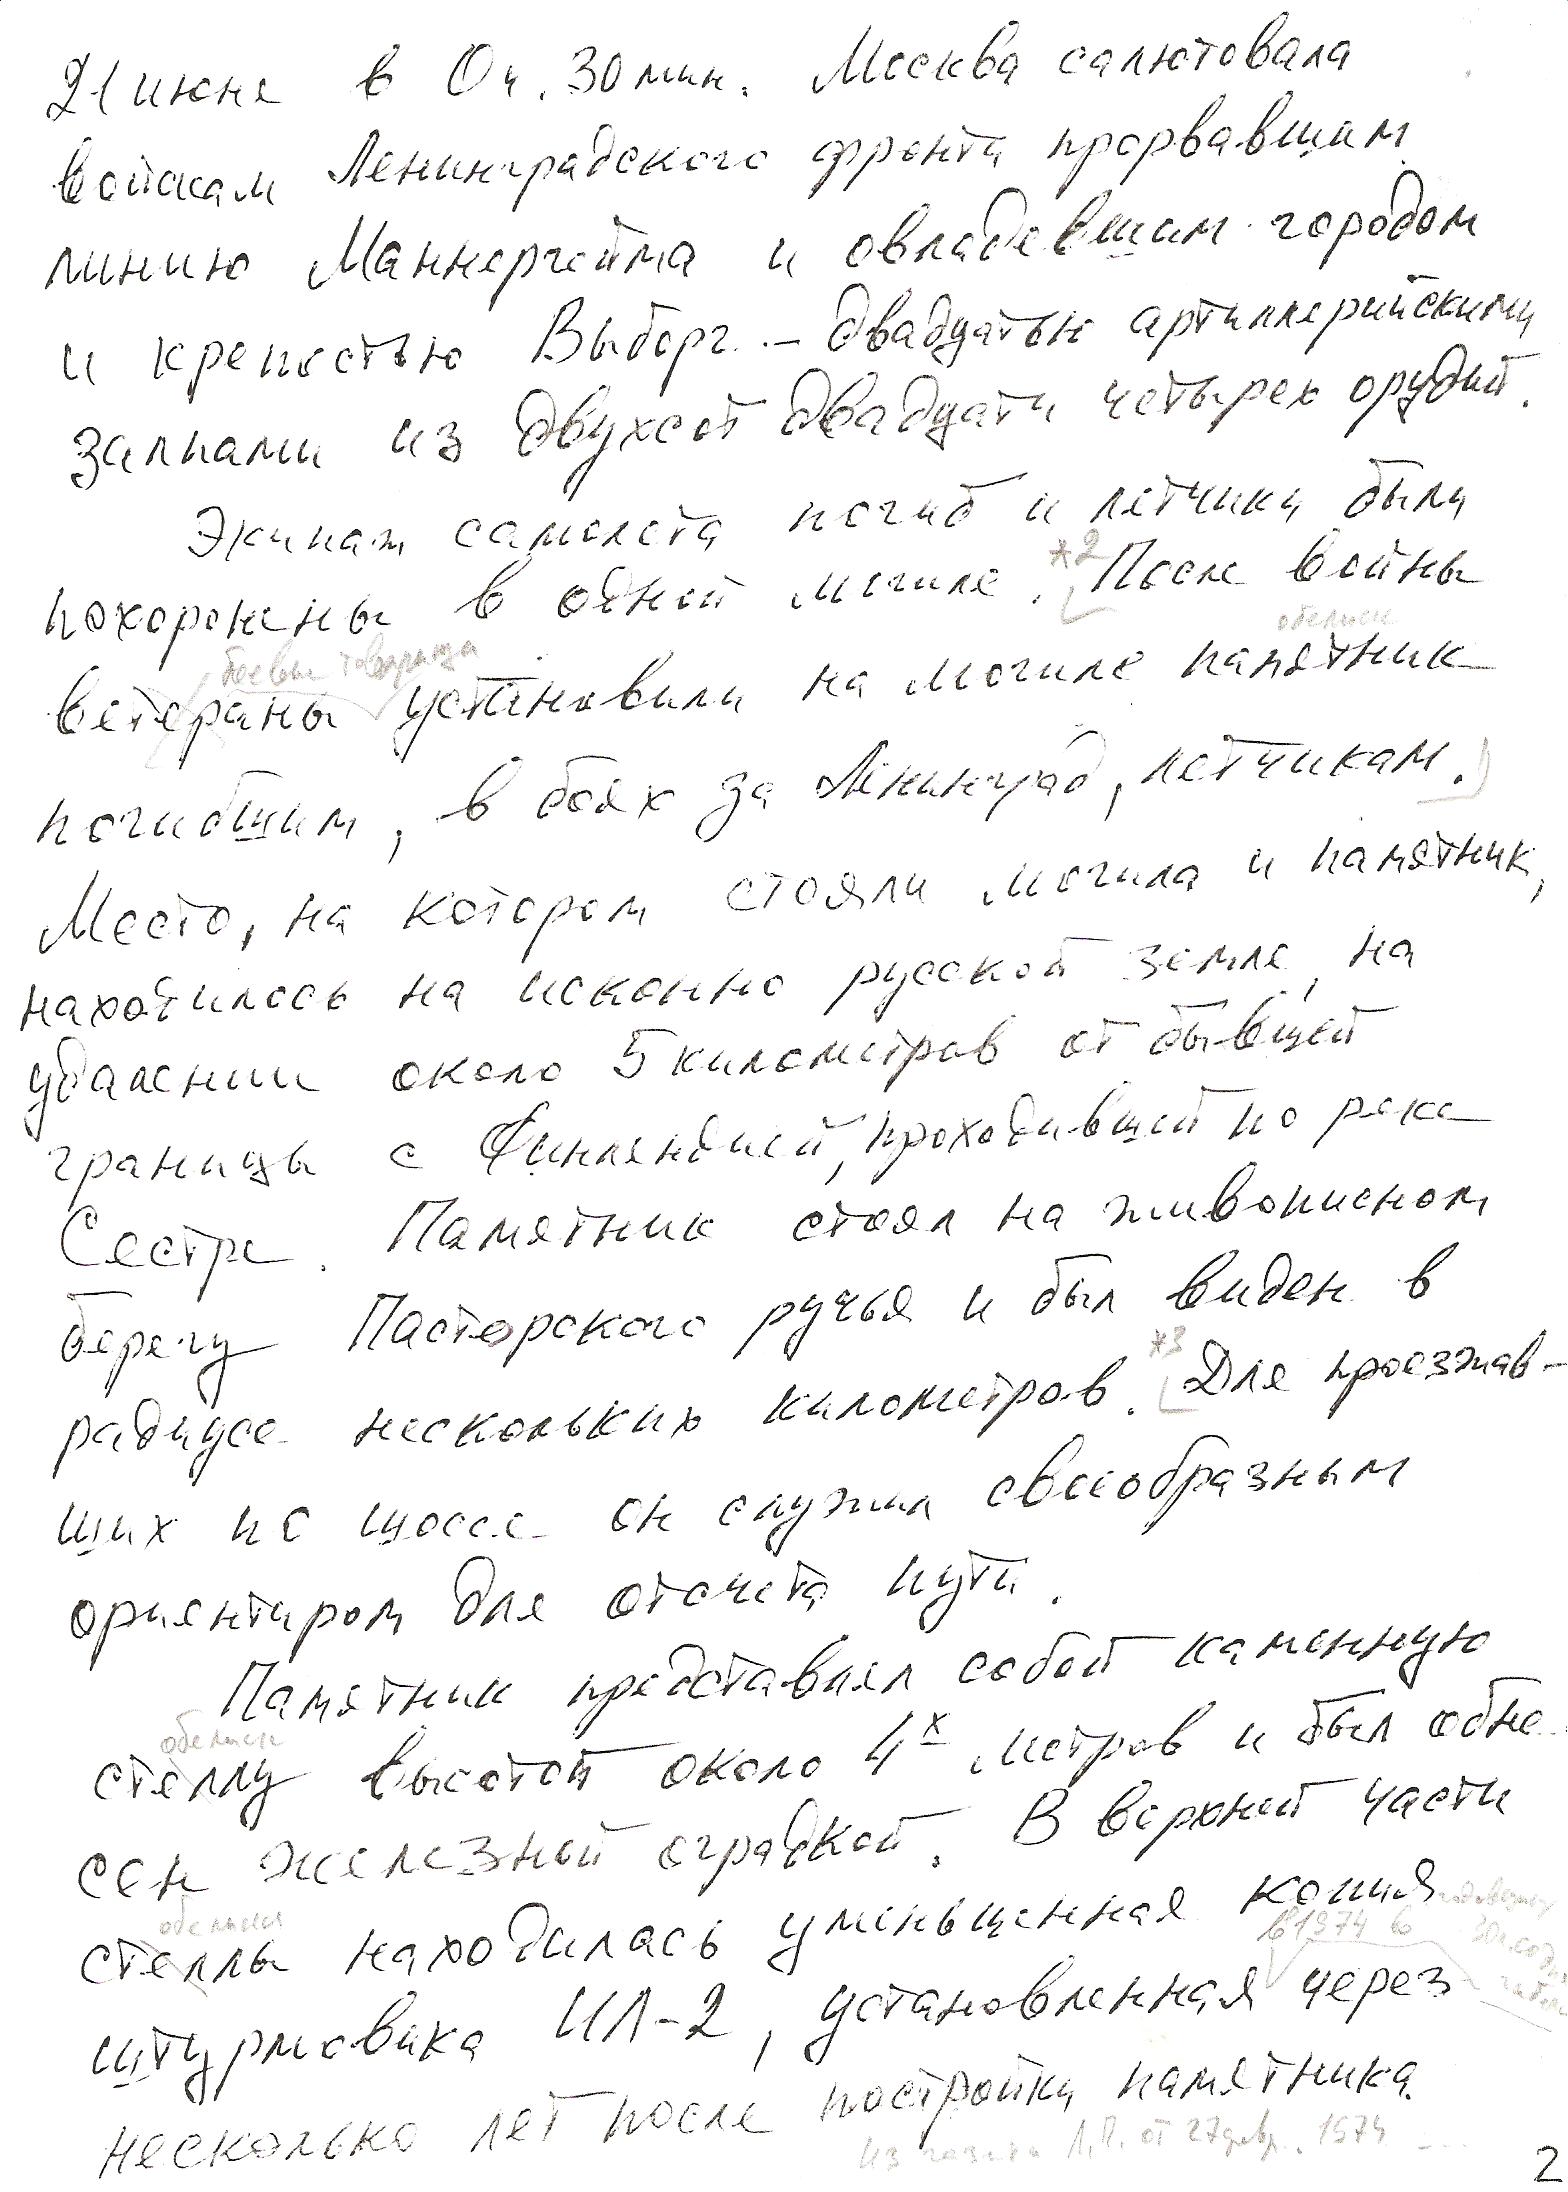 21 июня в 0ч. 30 мин. Москва салютовала
войскам Ленинградского фронта прорвавшим
линию Маннергейма и овладевшим городом
и крепостью Выборг. – двадцатью артиллерийскими
залпами из двухсот двадцати четырех орудий.
Экипаж самолета погиб и летчики были
похоронены в одной могиле. *2 После войны
обелиск
боевые товарищи
ветераны установили на могиле памятник
погибшим, в боях за Ленинград, летчикам.)
Место, на котором стояли могила и памятник,
находилось на исконно русской земле, на
удалении около 5 километров от бывшей
границы с Финляндией, проходившей по реке
Сестре. Памятник стоял на живописном
берегу Пасторского ручья и был виден в
*3
радиусе нескольких километров. Для проезжав-
ших по шоссе он служил своеобразным
ориентиром для отсчета пути.
Памятник представлял собой каменную
обелиск
стеллу высотой около 4х метров и был обне-
сен железной оградкой. В верхней части
обелиска
стеллы находилась уменьшенная копия
в 1974 во
штурмовика ИЛ-2, установленная через
несколько лет после постройки памятника.
из газеты Л.П. от 27 февр. 1974
2